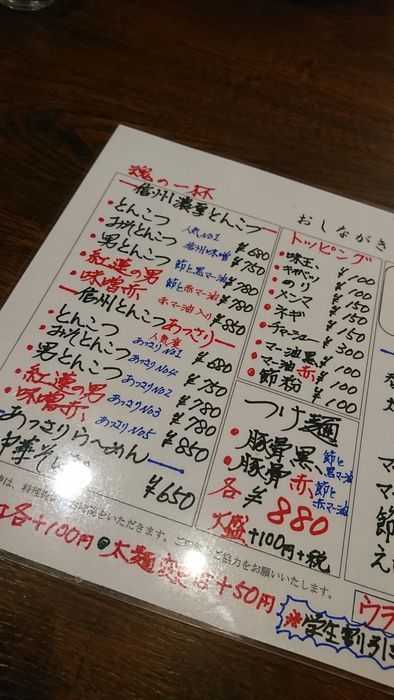 おしながき
魂の一杯
信州濃厚とんこつ
・とんこつ 人気No1 ¥680
・みそとんこつ 信州味噌 ¥750
・男とんこつ 節と黒マー油 ¥780
・紅蓮の男 節と赤マー油 ¥780
・味噌赤 赤マー油入り ¥850
信州とんこつあっさり
・とんこつ あっさりNo1 ¥680
・みそとんこつ あっさりNo4 ¥750
・男とんこつ あっさりNo2 ¥780
・紅蓮の男 あっさりNo3 ¥780
・味噌赤 あっさりNo5 ¥850
あっさりらーめん
中華そば ¥650
トッピング
・味玉 ¥100
・キャベツ ¥100
・のり ¥100
・メンマ ¥150
・ネギ ¥150
・チャーシュー ¥300
・マー油黒 ¥100
・マー油赤 ¥100
・節粉 ¥100
つけ麺
・豚骨黒 節と黒マー油
・豚骨赤 節と赤マー油
各¥880
大盛+100円+税
お時間をいただきます。
ご協力をお願いいたします。
各+100円 ・太麺
+50円
※学生割引